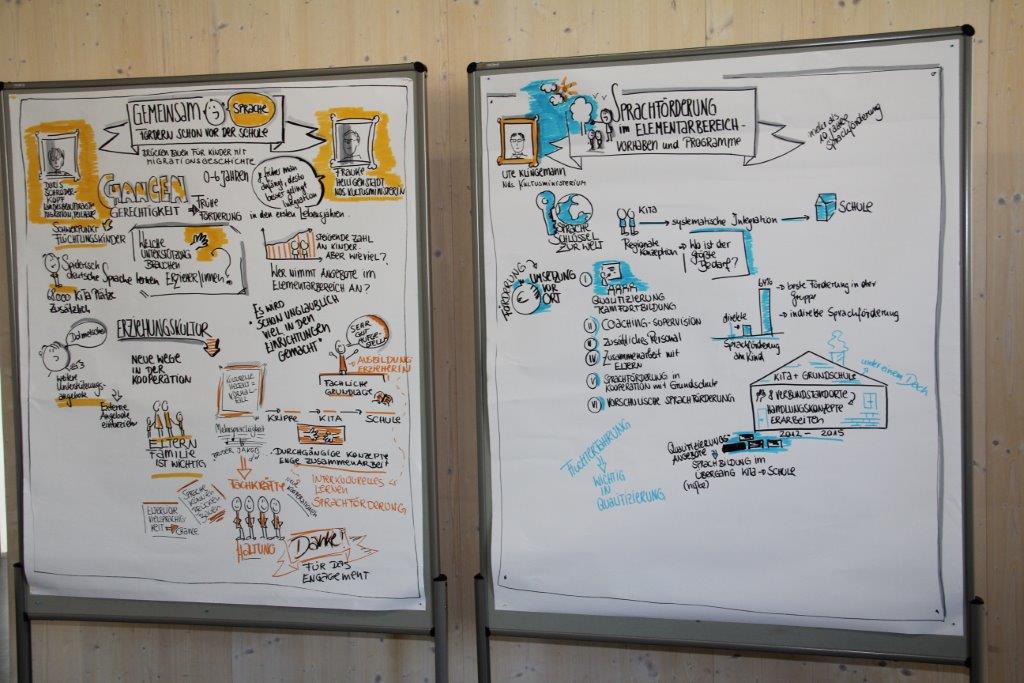 GEMEINSAM
SPRACHE
FÖRDERN SCHON VOR DER SCHULE
BRÜCKEN BAUEN FÜR KINDER MIT
MIGRATIONSGESCHICHTE
0-6 JAHREN
DORIS
SCHRÖDER
KÖPF
FRAUKE
HEILIGENSTADT
NDS. KULTUSMINISTERIN
CHANCEN
GERECHTIGKEIT
FRÜHE
FÖRDERUNG in den ersten Lebensjahren.
SCHWERPUNKT
FLÜCHTLINGSKINDER
WELCHE
UNTERSTÜTZUNG
BRAUCHEN
ERZIEHER/INNEN?
STEIGENDE ZAHL
AN KINDER.
ABER WIEVIEL?
WER NIMMT ANGEBOTE IM
ELEMENTARBEREICH AN?
Spielerisch
deutsche Sprache lernen
KITA PLÄTZE
ZUSÄTZLICH
"ES WIRD
SCHON UNGLAUBLICH
VIEL IN DEN
EINRICHTUNGEN
GEMACHT"
Dolmetscher
ERZIEHUNGSKULTUR
NEUE WEGE
IN DER
KOOPERATION
SEHR
GUT
AUFGESTELLT
AUSBILDUNG
ERZIEHERIN
FACHLICHE
GRUNDLAGE
weitere
Unterstützungs-
angebote
Externe
Angebote
einbeziehen
KULTURELLE
VIELFALT =
VORTEILE
KRIPPE → KITA → SCHULE
Mehrsprachigkeit
BRUDER JAKOB
ELTERN
FAMILIE
IST WICHTIG
DURCHGÄNGIGE KONZEPTE
ENGE ZUSAMMENARBEIT
FACHKRÄFTE
INTERKULTURELLES
LERNEN
SPRACHFÖRDERUNG
SPRACHE
KÖNNEN
BRÜCKEN
BAUEN
CHANCE
HALTUNG
Danke!
FÜR DAS
ENGAGEMENT
SPRACHFÖRDERUNG
IM ELEMENTARBEREICH -
VORHABEN UND PROGRAMME
mehr als
10 Jahre
Sprachförderung
UTE KLINGEMANN
NDS. KULTUSMINISTERIUM
SPRACHE
SCHLÜSSEL
ZUR WELT
KITA
systematische Integration
SCHULE
Regionale
Konzeption
Wo ist der
größte
Bedarf?
FÖRDERUNG
UMSETZUNG
VOR
ORT
I
QUALIFIZIERUNG
TEAMFORTBILDUNG
II COACHING-SUPERVISION
III ZUSÄTZLICHES PERSONAL
IV ZUSAMMENARBEIT MIT
ELTERN
V SPRACHFÖRDERUNG IN
KOOPERATION MIT GRUNDSCHULE
VI VORSCHULISCHE SPRACHFÖRDERUNG
64%
→ breite Förderung in der
Gruppe
→ indirekte Sprachförderung
direkte
Sprachförderung
am Kind
unter einem Dach
KITA + GRUNDSCHULE
8 VERBUNDSTANDORTE
HANDLUNGSKONZEPTE
ERARBEITEN
2012 - 2015
QUALIFIZIERUNGS
ANGEBOTE
SPRACHBILDUNG IM
ÜBERGANG KITA → SCHULE
(nifbe)
WICHTIG
IN
QUALIFIZIERUNG